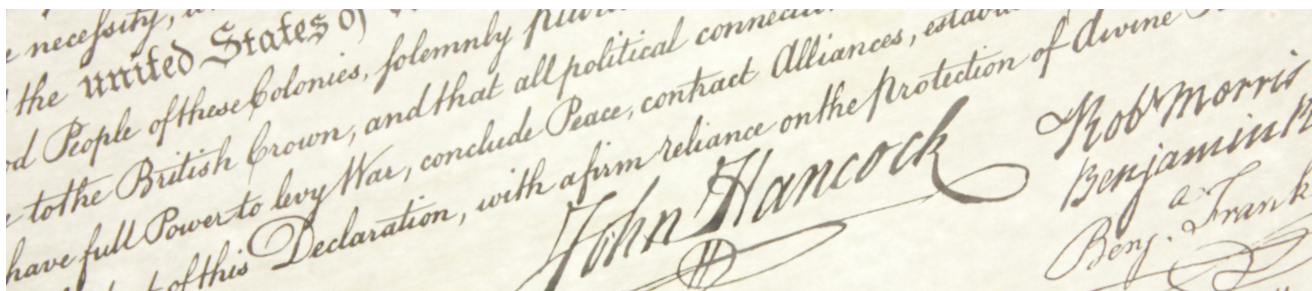 necessity,
the united States of
People of these Colonies, solemnly
to the British Crown, and that all political
have full Power to levy War, conclude Peace, contract Alliances,
of this Declaration, with a firm reliance on the Protection of divine
John Hancock
Rob Morris
Benjamin
Benj. Frank